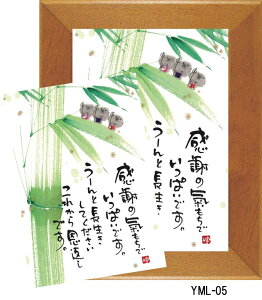 感謝の氣もちで
いっぱいです。
うーんと長生き
感謝の氣もちで
いっぱいです。
うーんと長生き
してください
これから恩返し
です。
YML-05